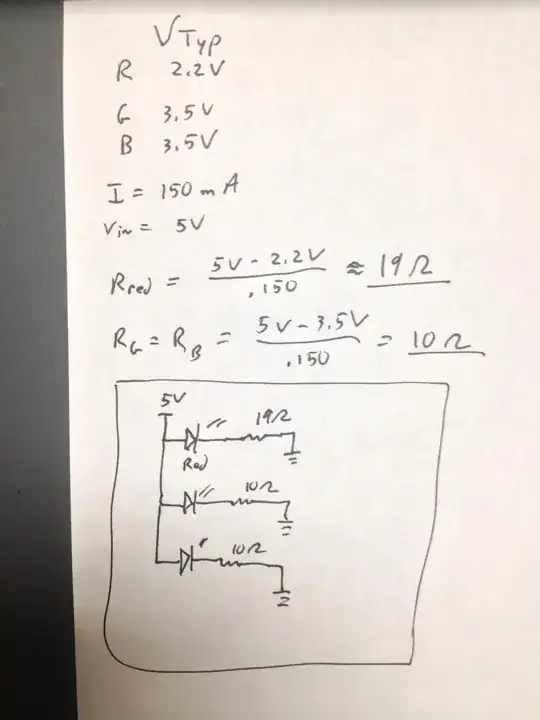 V Typ
R 2.2V
G 3.5V
B 3.5V
I = 150 mA
Vin = 5V
Rred = 5V - 2.2V / .150 ≈ 19Ω
RG = RB = 5V - 3.5V / .150 = 10Ω
5V
19Ω
Red
10Ω
10Ω